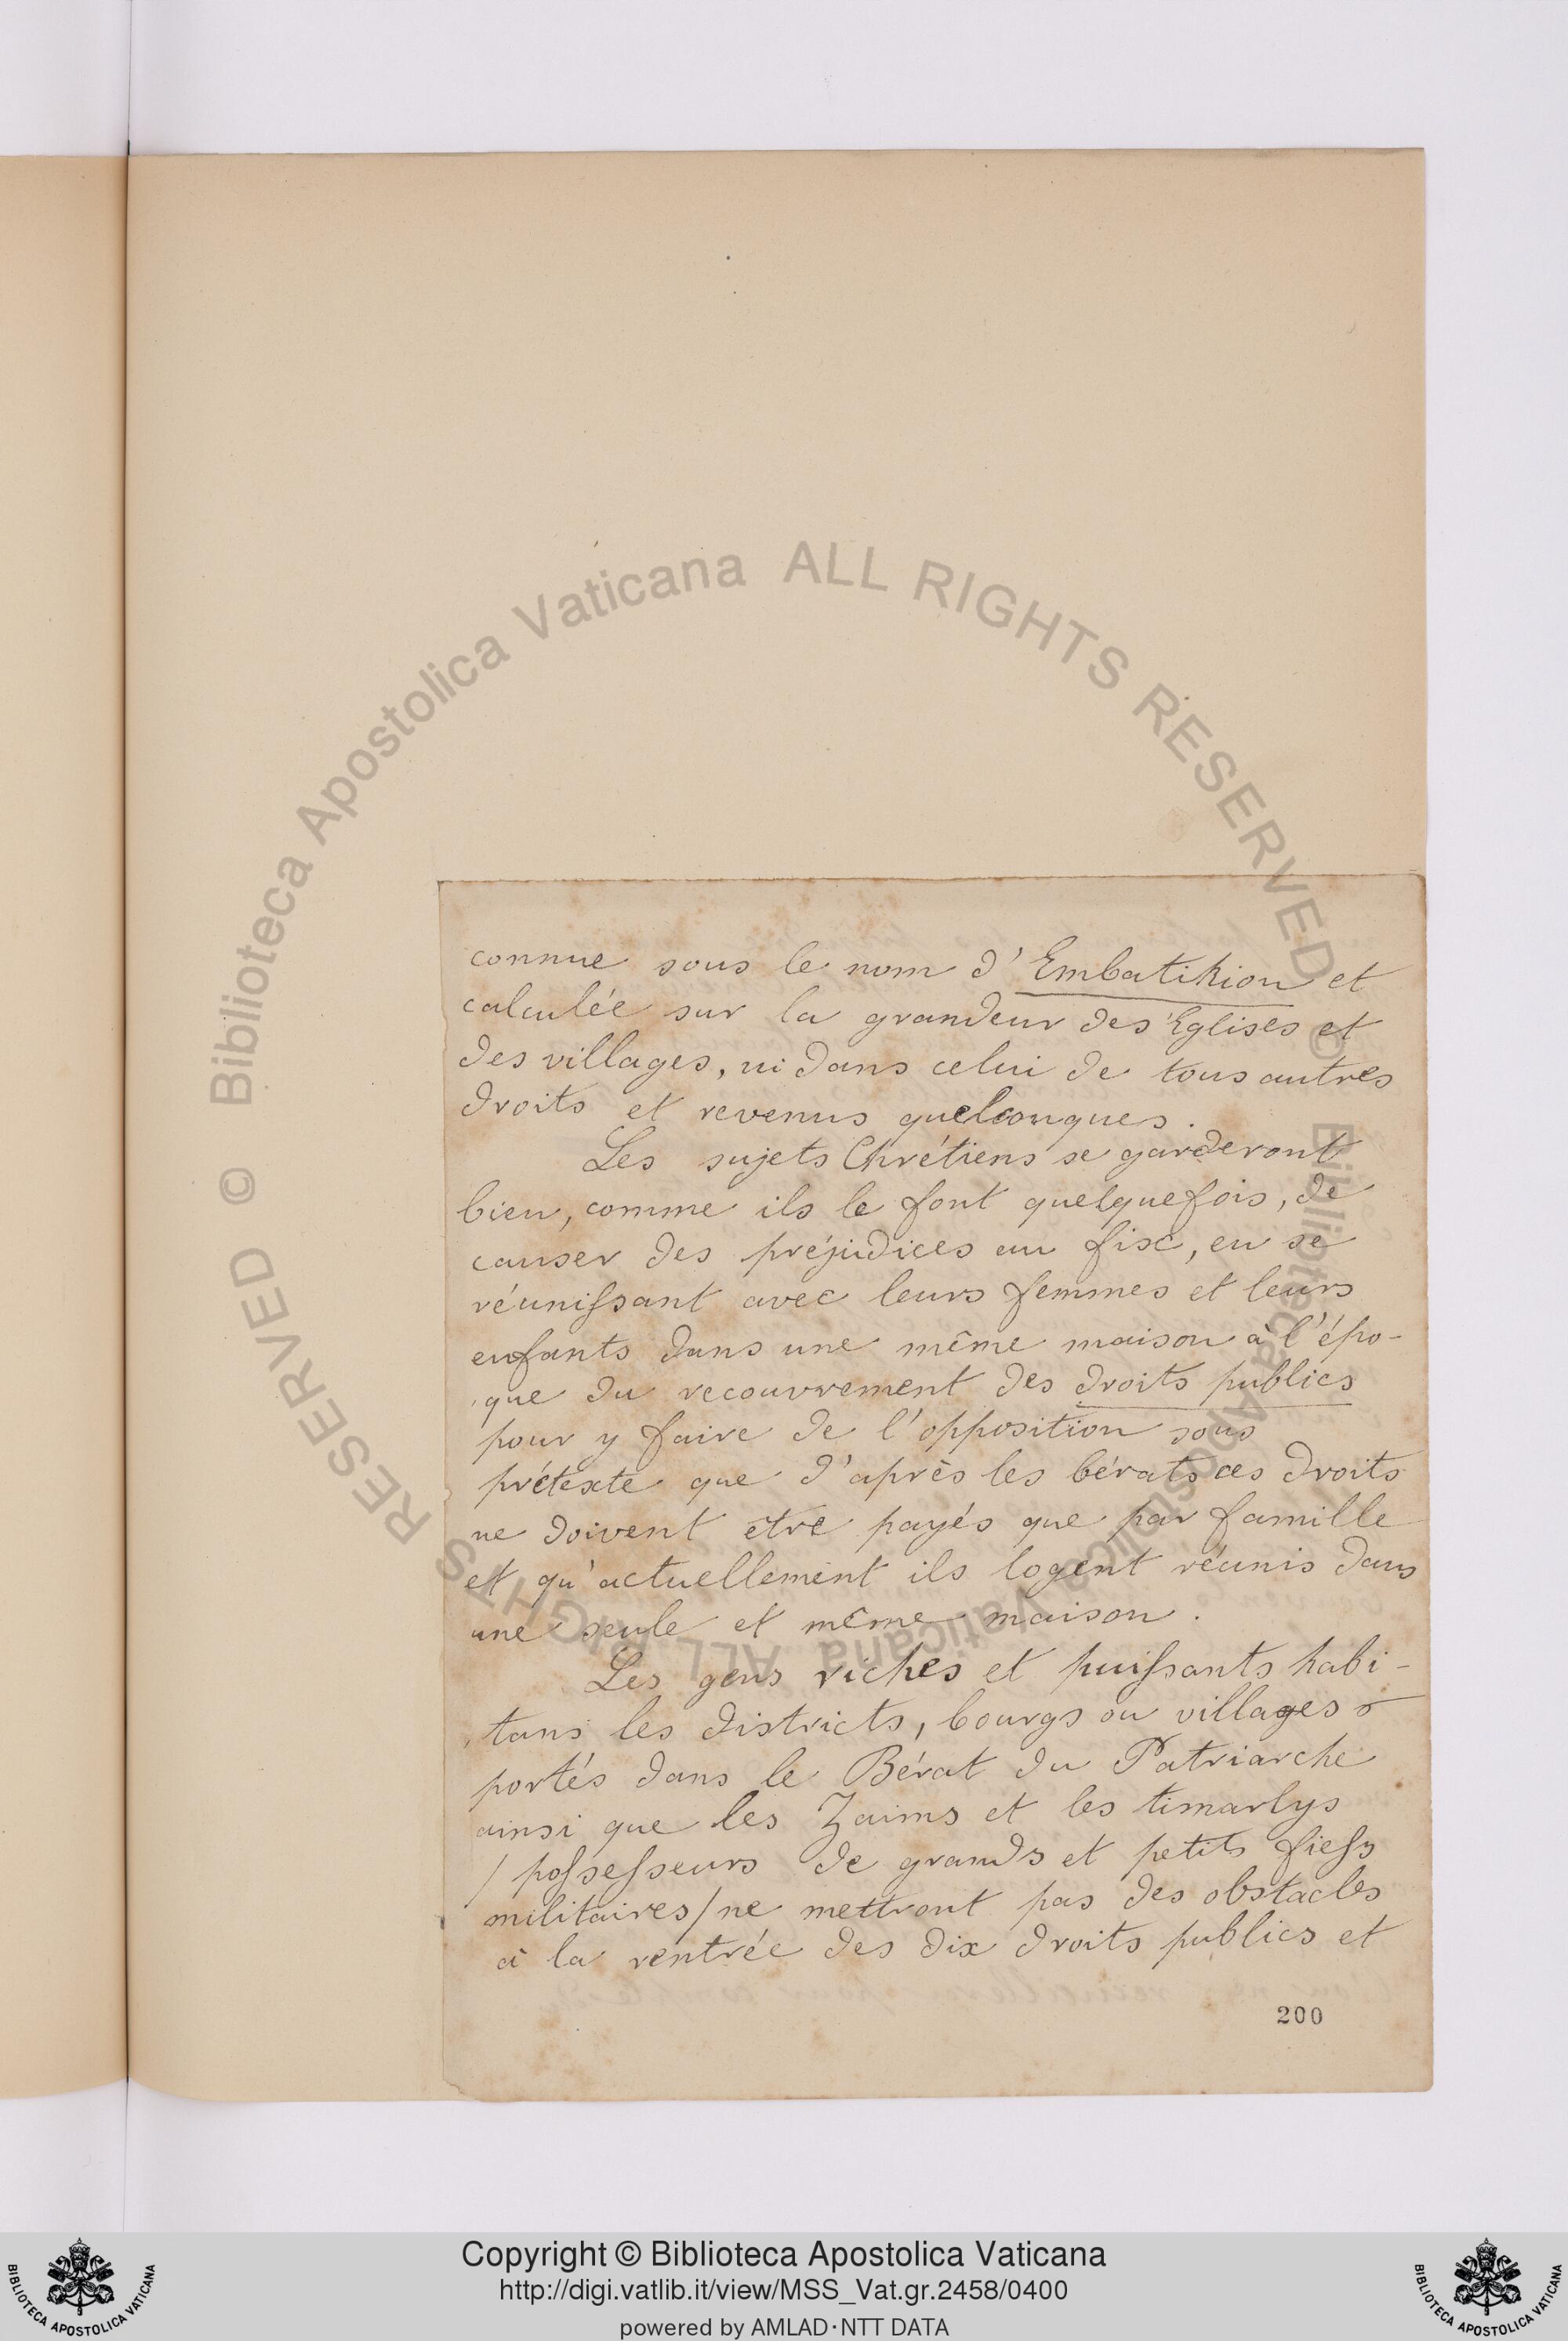 connue sous le nom d'Embatikion et
calculée sur la grandeur des Eglises et
des villages, ni dans celui de tous autres
droits et revenus quelconques.
Les sujets Chrétiens se garderont
bien, comme ils le font quelquefois, de
causer des préjudices au fisc, en se
réunissant avec leurs femmes et leurs
enfants dans une même maison à l'épo-
que du recouvrement des droits publics
pour y faire de l'opposition sous
prétexte que d'après les bérats ces droits
ne doivent être payés que par famille
et qu'actuellement ils logent réunis dans
une seule et même maison.
Les gens riches et puissants habi-
tans les districts, bourgs ou villages
portés dans le Bérat du Patriarche
ainsi que les Zaims et les timarlys
/ possesseurs de grands et petits fiefs
militaires / ne mettront pas des obstacles
à la rentrée des dix droits publics et
200
© Biblioteca Apostolica Vaticana ALL RIGHTS RESERVED
© Biblioteca Apostolica Vaticana ALL RIGHTS RESERVED
BIBLIOTECA APOSTOLICA VATICANA
Copyright © Biblioteca Apostolica Vaticana
http://digi.vatlib.it/view/MSS_Vat.gr.2458/0400
powered by AMLAD·NTT DATA
BIBLIOTECA APOSTOLICA VATICANA